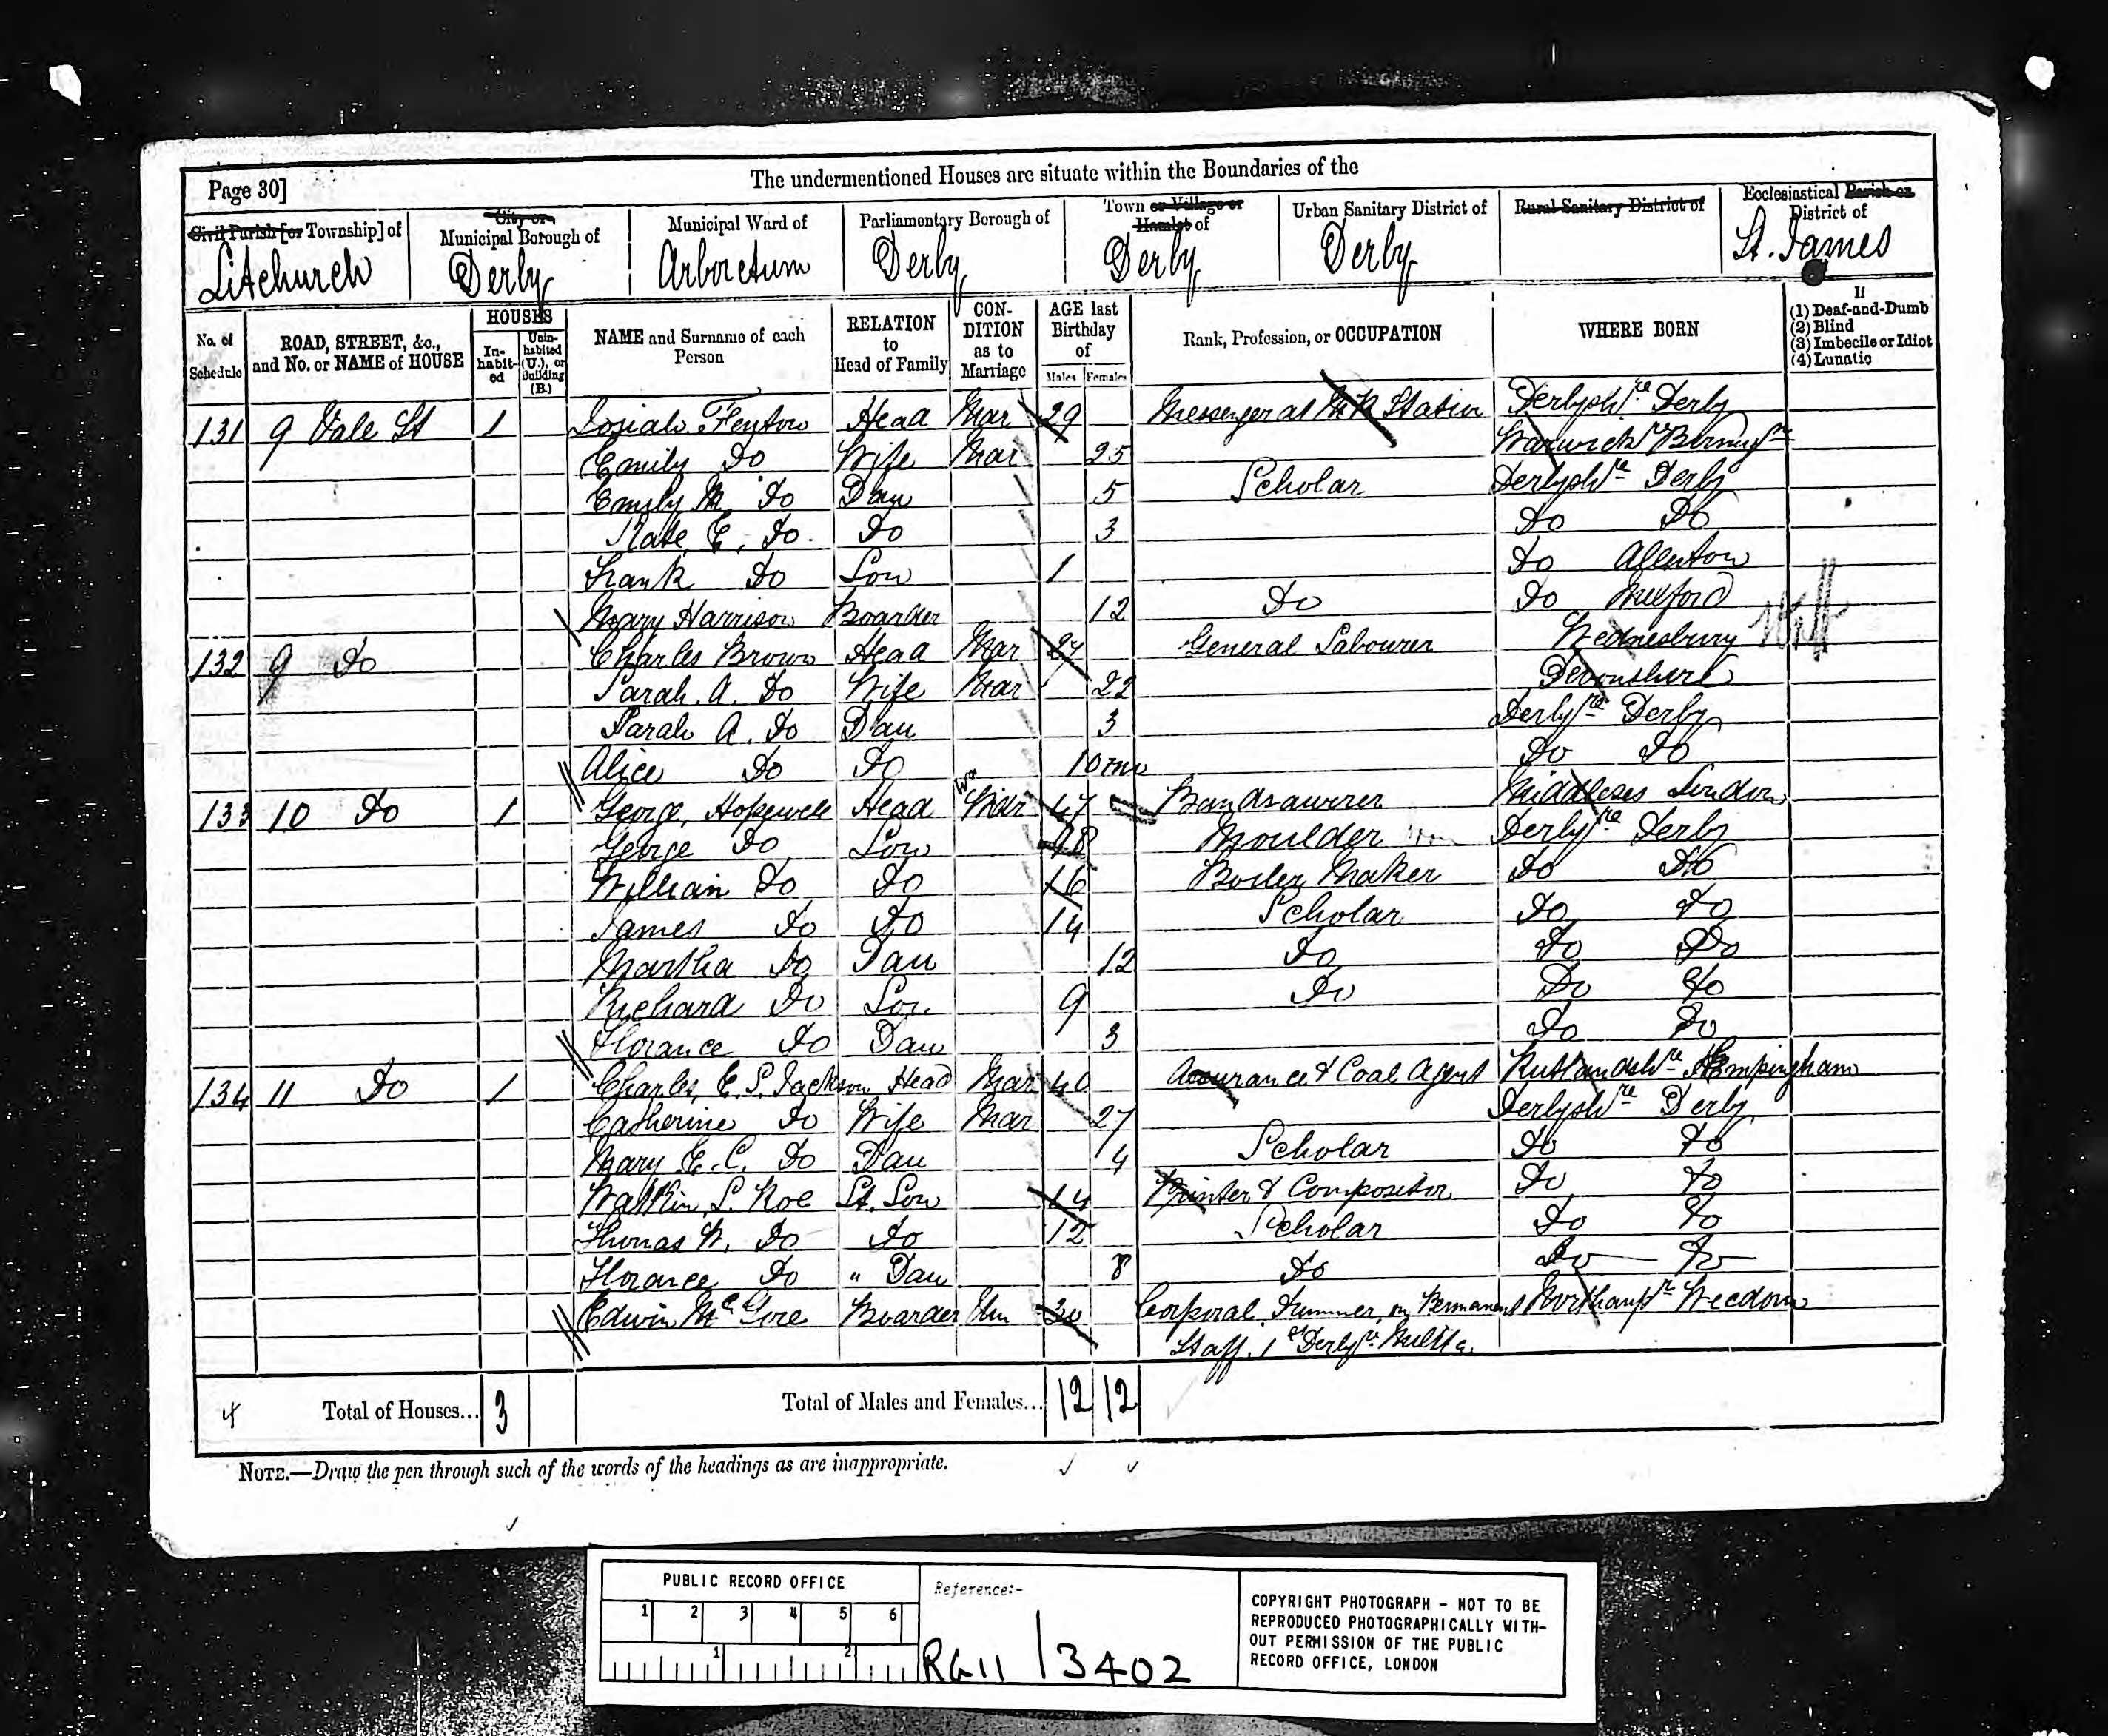 Page 30]
The undermentioned Houses are situate within the Boundaries of the
Civil Parish [or Township] of
City or Municipal Borough of
Municipal Ward of
Parliamentary Borough of
Town or Village or Hamlet of
Urban Sanitary District of
Rural Sanitary District of
Ecclesiastical Parish or District of
Litchurch Derby Arboretum Derby Derby Derby St. James
No. of Schedule
ROAD, STREET, &c., and No. or NAME of HOUSE
HOUSES
In-habit-ed
Unin-habited (U.), or Building (B.)
NAME and Surname of each Person
RELATION to Head of Family
CON-DITION as to Marriage
AGE last Birthday of
Males Females
Rank, Profession, or OCCUPATION
WHERE BORN
If
(1) Deaf-and-Dumb
(2) Blind
(3) Imbecile or Idiot
(4) Lunatic
131 9 Vale St 1 Josiah Fenton Head Mar 29 Messenger at M R Station Derbyshre Derby
Emily Do Wife Mar 25 Warwickre Birmgm
Emily M. Do Dau 5 Scholar Derbyshre Derby
Kate E. Do Do 3 Do Do
Frank Do Son 1 Do Allenton
Mary Harrison Boarder 12 Do Do Milford
132 9 Do Charles Brown Head Mar 27 General Labourer Wednesbury
Sarah A. Do Wife Mar 22 Devonshire
Sarah A. Do Dau 3 Derbyre Derby
Alice Do Do 10 mo Do Do
133 10 Do 1 George Hopewell Head Mar Wr 47 Bandsawer Middlesex London
George Do Son 18 Moulder Derbyre Derby
William Do Do 16 Boiler Maker Do Do
James Do Do 14 Scholar Do Do
Martha Do Dau 12 Do Do Do
Richard Do Son 9 Do Do Do
Florance Do Dau 3 Do Do
134 11 Do 1 Charles E. S. Jackson Head Mar 40 Assurance & Coal Agent Rutlandshre Empingham
Catherine Do Wife Mar 27 Derbyshre Derby
Mary E. C. Do Dau 4 Scholar Do Do
Watkin S. Roe St. Son 14 Printer & Compositor Do Do
Thomas W. Do Do 12 Scholar Do Do
Florance Do " Dau 8 Do Do Do
Edwin McGore Boarder Un 30 Corporal Drummer on Permanent Northampr Weedon
Staff, 1st Derbyre Militia
4 Total of Houses... 3 Total of Males and Females... 12 12
NOTE.—Draw the pen through such of the words of the headings as are inappropriate.
PUBLIC RECORD OFFICE
1 2 3 4 5 6
1 2
Reference:-
RG 11 / 3402
COPYRIGHT PHOTOGRAPH - NOT TO BE
REPRODUCED PHOTOGRAPHICALLY WITH-
OUT PERMISSION OF THE PUBLIC
RECORD OFFICE, LONDON